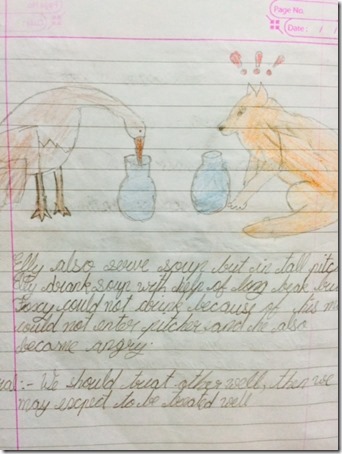 Page No.
Date: / /
!!!
Elly also serve soup but in tall pitch
Elly drank soup with help of long beak bu
Foxy could not drink because of his m
could not enter pitcher and he also
became angry.
ral:- We should treat other well, then we
may expect to be treated well